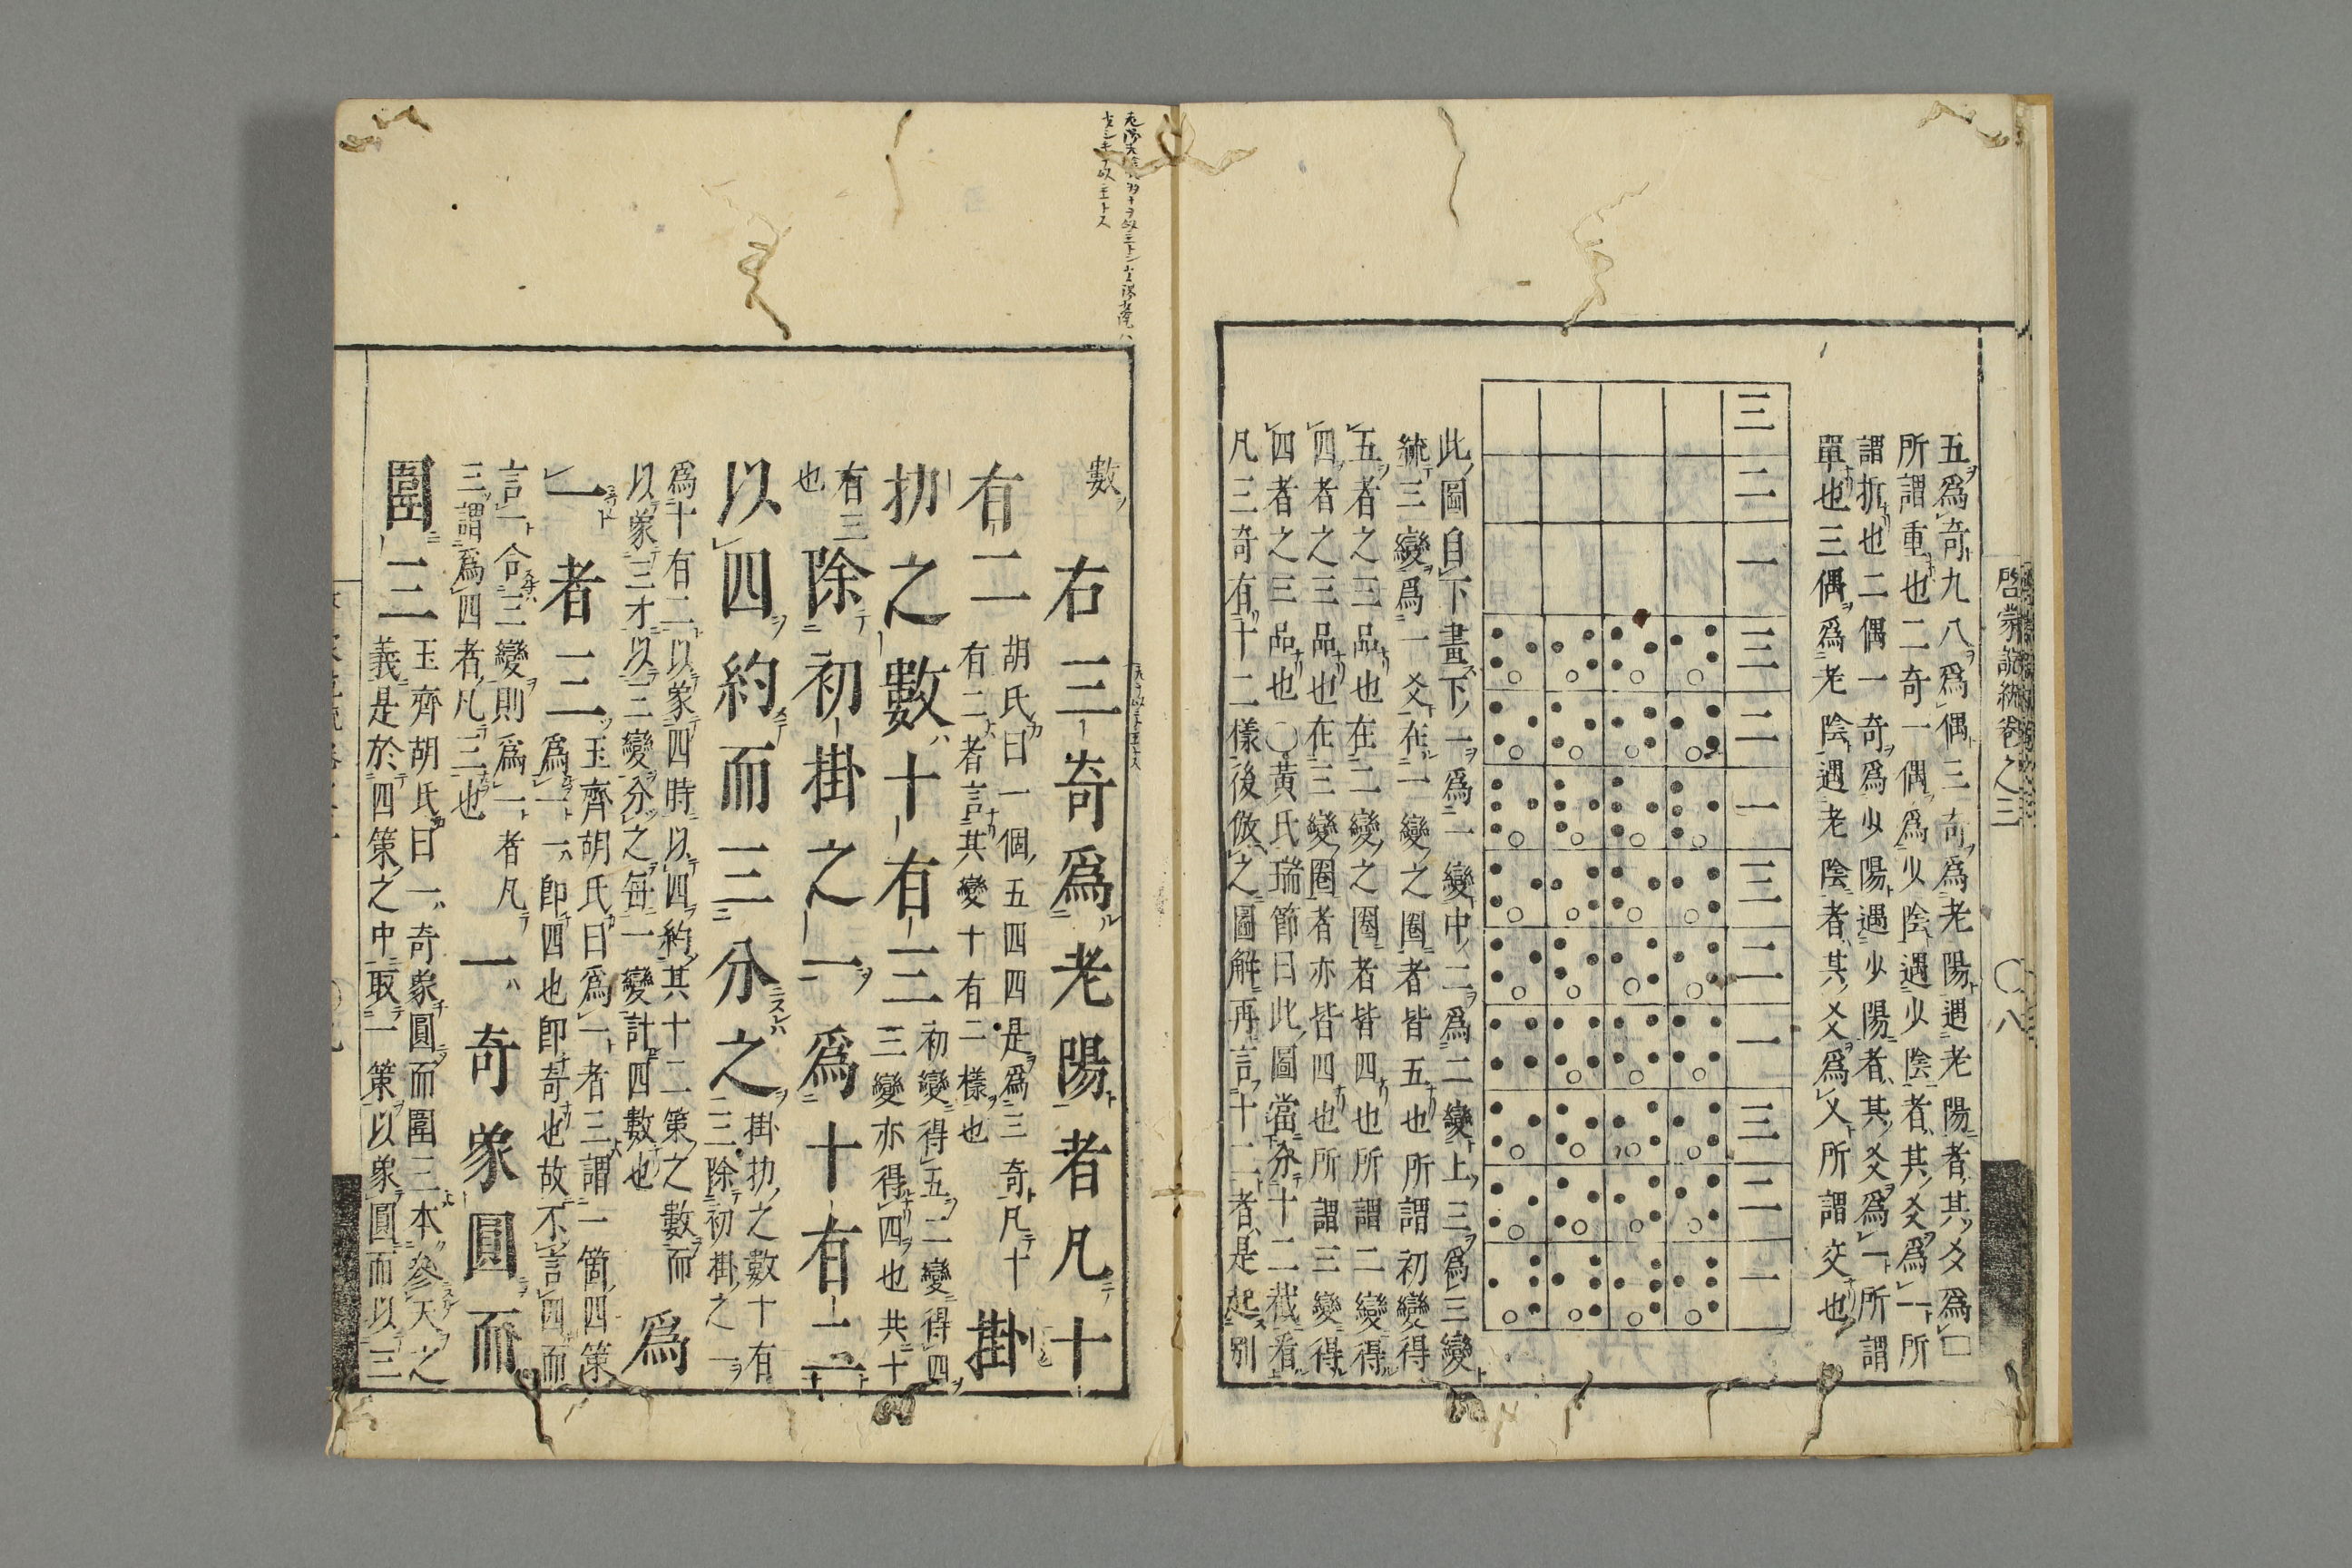 五爲奇九八爲偶三奇爲老陽遇老陽者其爻爲□
所謂重也二奇一偶爲少陰遇少陰者其爻爲一所
謂拆也二偶一奇爲少陽遇少陽者其爻爲一所謂
單也三偶爲老陰遇老陰者其爻爲乂所謂交也
三 二 一 三 二 一 三 二 一 三 二 一
此圖自下畫下一爲一變中二爲二變上三爲三變
統三變爲一爻在一變之圈者皆五也所謂初變得
五者之三品也在二變之圈者皆四也所謂二變得
四者之三品也在三變圈者亦皆四也所謂三變得
四者之三品也〇黃氏瑞節曰此圖當分十二截看
凡三奇有十二樣後倣之圖解再言十二者是起別
啓蒙說統卷之三 〇八
數
右三奇爲老陽者凡十
有二
胡氏曰一個五四四是爲三奇凡十
有二者言其變十有二樣也
掛
扐之數十有三
初變得五二變得四
三變亦得四也共十
有三
也
除初掛之一爲十有二
以四約而三分之
掛扐之數十有
三除初掛之一
爲十有二以象四時以四約其十二策之數而
以象三才以三變分之每一變計四數也
爲
一者三
玉齊胡氏曰爲一者三謂一箇四策
爲一一卽四也卽奇也故不言四而
言一合三變則爲一者凡
三謂爲四者凡三也
一奇象圓而
圍三
玉齊胡氏曰一奇象圓而圍三本參天之
義是於四策之中取一策以象圓而以三